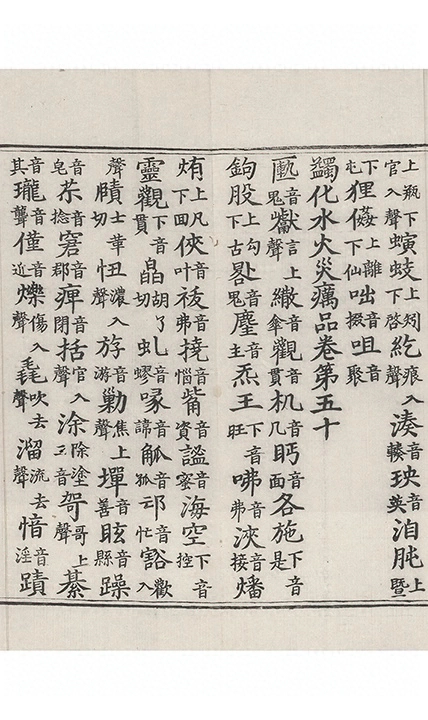 上瓶下官入聲螾蚑上矧下啓紇痕入聲湊音輳瑛音英洎肫上暨
下屯狸上離下仙咄音掇咀音聚
蠲化水火災癘品卷第五十
匭音晷獻言上聲繖音傘觀音貫机音几眄音面各施下音是
鉤股上勾下古晷音鬼麈音主炁王下音旺咈音弗浹音接燔
烠上凡下回俠音叶祓音弗撓音惱觜音資謐音密海空下音控
靈觀下音貫皛胡了切虬音蟉喙音諱觚音狐邙音忙豁歡入
聲賾士革切忸濃入聲斿音游勦焦上聲墠音善眩音縣躁
音皂苶音捻窘音郡痺音閉括官入聲涂除塗二音哿哥上聲綦
音其瓏音聾僅音近爍傷入聲毳吹去聲溜流去聲愔音淫蹟